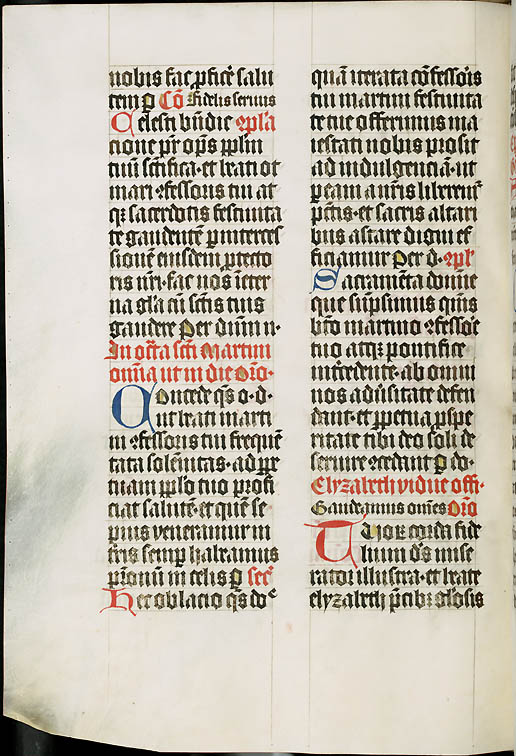 nobis fac ꝑficẽ salu
tem ꝑ Cõ Fidelis seruus
Celesti bñdic̃ ꝛpl̃a
cione pr̃ oп̃s ppl̃m
tuũ sc̃ifica · et beati ot
mari ꝯfessoris tui at
qꝫ sacerdotis festiuita
te gaudentẽ ꝑ interces
sionẽ eiusdem ꝓtecto
ris nr̃i · fac nos in eter
na gl̃a cũ sc̃tis tuis
gaudere Per dñm n·
In oct̃a sc̃ti Martini
om̃ia ut in die Oro·
Concede qs̃ o · d·
ut beati marti
ni ꝯfessoris tui frequẽ
tata solẽnitas · ad ꝑpe
tuam ppl̃o tuo profi
ciat salutẽ · et quẽ se
pius veneramur in
tr̃is semꝑ habeamus
pr̃onũ in celis ꝑ sec̃
Hec oblacio qs̃ dñe
quã iterata cõfessoris
tui martini festiuita
te tue offerimus ma
iestati nobis prosit
ad indulgenciã · ut
ꝑ eam a nr̃is liberem̃
pc̃tis · et sacris altari
bus astare digni ef
ficiamur Per d· ꝛpl̃
Sacramẽta domĩe
que sũpsimus qum̃s
bt̃o martino ꝯfessoꝛe
tuo atqꝫ pontifice
int̃cedente · ab omni
nos aduersitate defen
dant · et ꝑpetua ꝓspe
ritate tibi deo soli de
seruire ꝯcedant ꝑ do·
Elyzabeth vidue offi·
Gaudeamus om̃es Oro
Tuoꝝ corda fide
lium d's mise
rator illustra · et beate
elyzabeth p̃cibꝫ gl̃osis